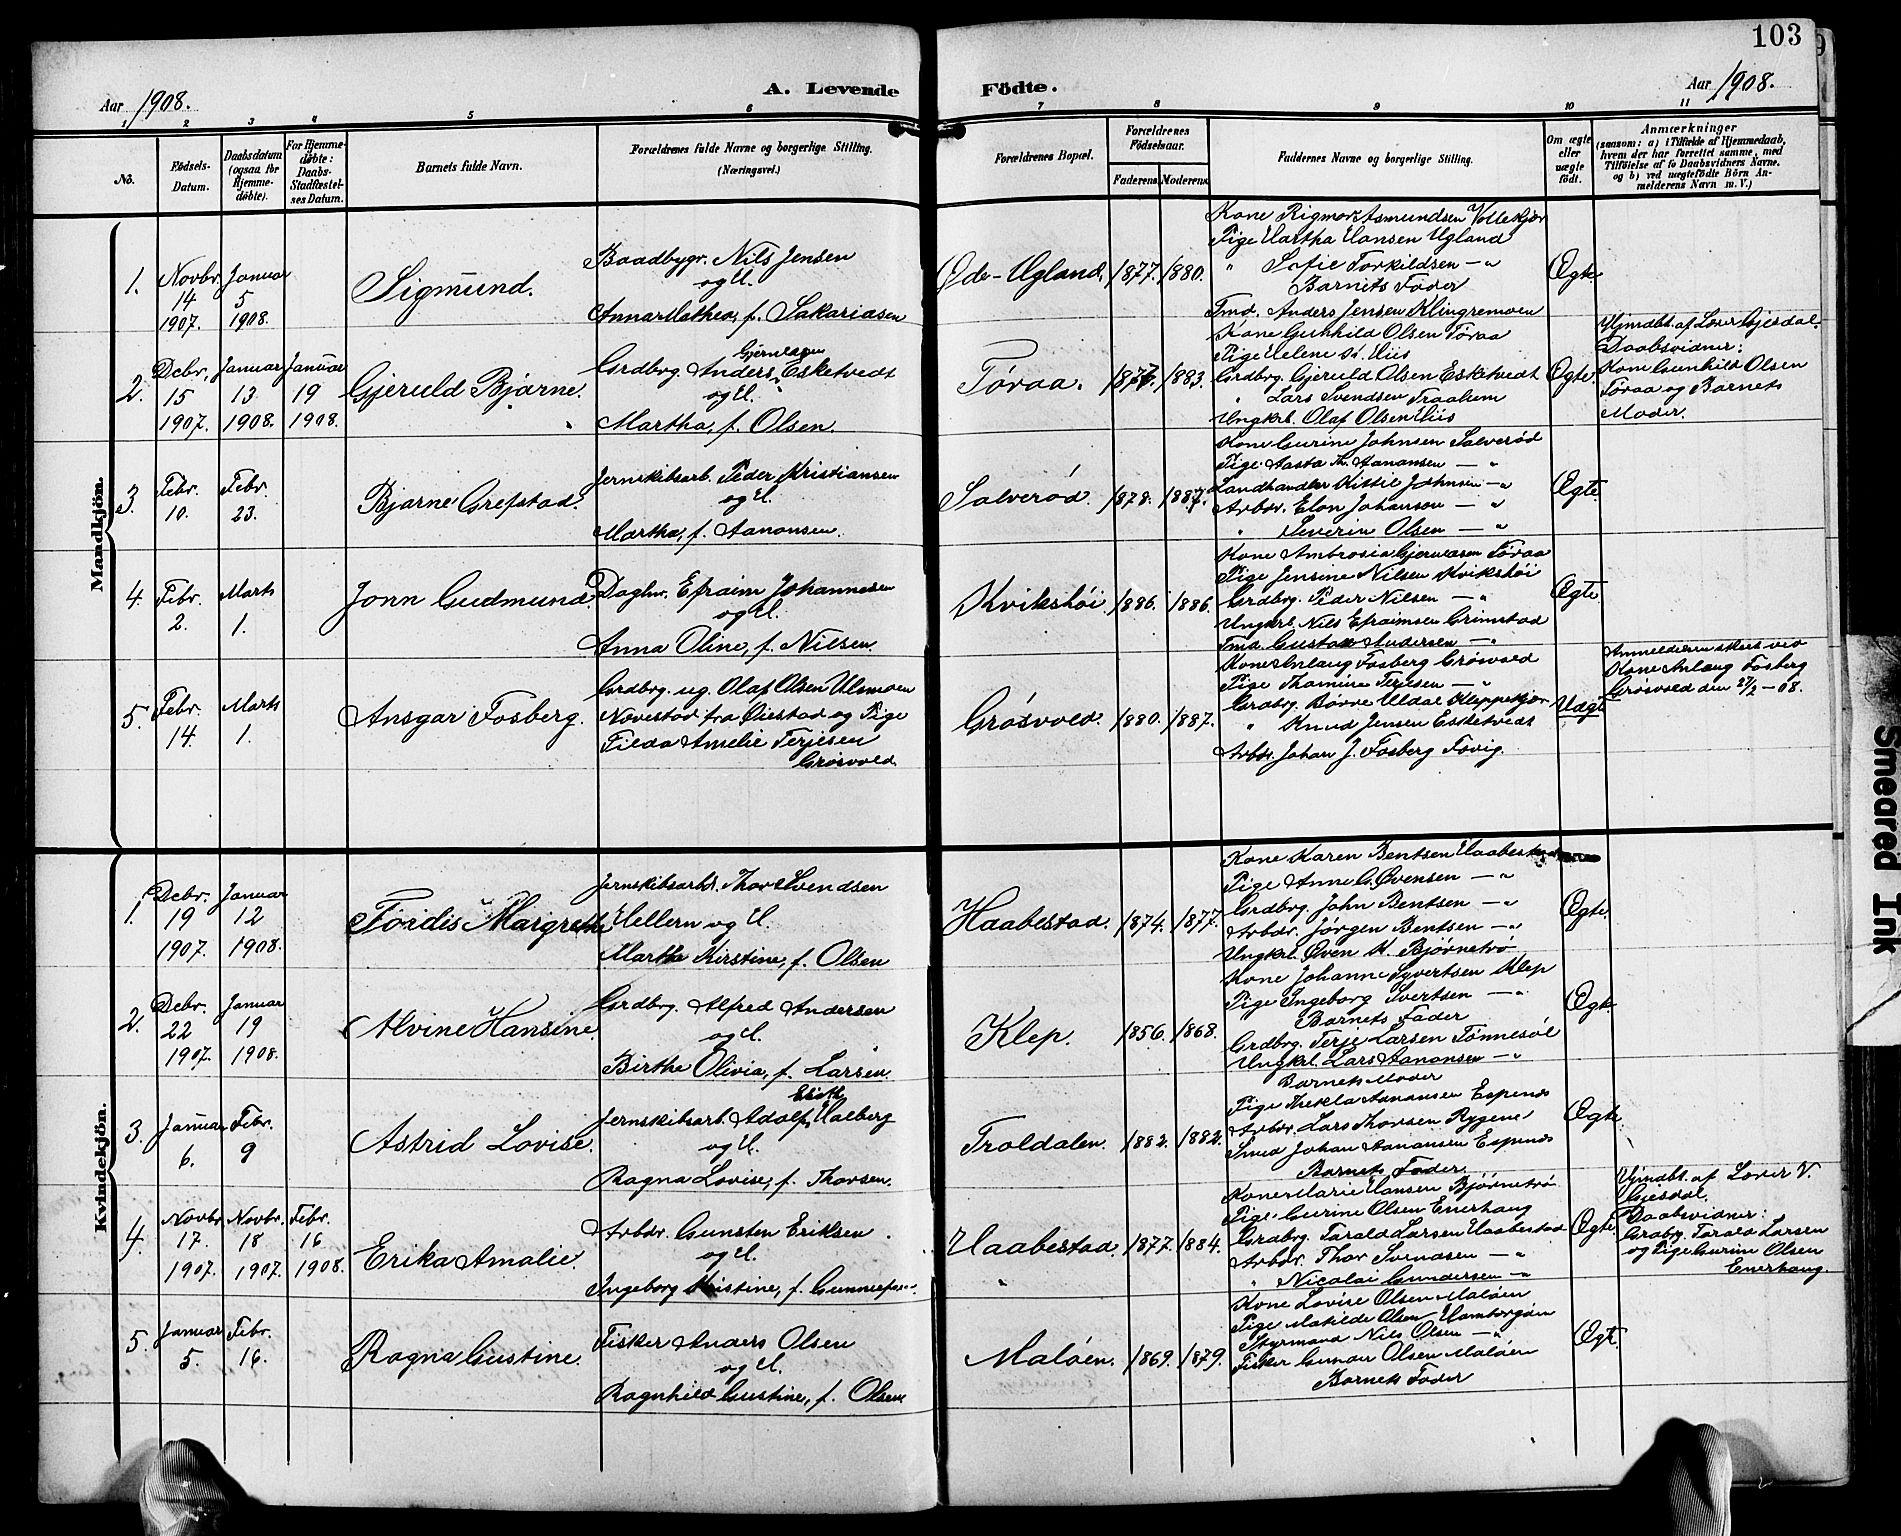 103
Aar 1908.
A. Levende Fødte.
Aar 1908.
1 2 3 4 5 6 7 8 9 10 11
No.
Fødsels-Datum.
Daabsdatum (ogsaa for Hjemmedøbte).
For Hjemmedøbte: Daabs-Stadfæstelses Datum.
Barnets fulde Navn.
Forældrenes fulde Navne og borgerlige Stilling. (Næringsvei.)
Forældrenes Bopæl.
Forældrenes Fødselsaar.
Faderens. Moderens.
Faddernes Navne og borgerlige Stilling.
Om ægte eller uægte født.
Anmærkninger
(saasom: a) i Tilfælde af Hjemmedaab, hvem der har forrettet samme, med Tilføielse af to Daabsvidners Navne. og b) ved uægtefødte Børn Anmelderens Navn m. V.)
Mandkjön.
1. Novbr. 14 1907. Januar 5 1908.
Sigmund.
Baadbygr. Nils Jensen
og H.
Anna Mathea, f. Sakariasen
Øde-Ugland. 1877. 1880.
Kone Rigmor Asmundsen Vollekjær
Pige Hartha Hansen Ugland
" Sofie Torkildsen — "
Barnets Fader
Tmd. Anders Jensen Klingremoen
Ægte
2. Dcbr. 15 1907. Januar 13 1908. Januar 19 1908.
Gjeruld Bjarne.
Grdbrg. Anders Gjerulsen Esketvedt
og H.
Martha, f. Olsen.
Tøraa. 1877. 1883.
Kone Gunhild Olsen Tøraa
Pige Helene O. Hiis
Grdbrg. Gjeruld Olsen Esketvedt
" Lars Svendsen Traalum
Ungkrl. Olaf Olsen Hiis
Ægte.
Hjmdbt. af Lærer Gjesdal.
Daabsvidner:
Kone Gunhild Olsen
Tøraa og Barnets
Moder.
3. Febr. 10. Febr. 23.
Bjarne Grefstad.
Jernskibsarb. Peder Kristiansen
og H.
Martha, f. Aanonsen.
Salverød. 1878. 1887.
Kone Gurine Johnsen Salverød
Pige Aasta Th. Aanonsen — "
Landhandler Kittil Johnsen — "
Arbdr. Elon Johanson — "
" Severin Olsen — "
Ægte
4. Febr. 2. Marts 1.
Jonn Gudmund.
Daglnr. Efraim Johannesen
og H.
Anna Oline, f. Nilsen.
Kvikshöi 1886. 1886.
Kone Ambrosia Gjerulsen Tøraa
Pige Jensine Nilsen Kvikshöi
Grdbrg. Peder Nilsen — "
Ungkrl. Nils Efraimsen Grimstad
Tmd. Gustav Andersen — "
Ægte.
5. Febr. 14. Marts 1.
Ansgar Fosberg.
Grdbrg. ug. Olaf Olsen Ulsmoen
Novestad fra Øiestad og Pige
Tilda Amelie Terjesen
Grøsvold
Grøsvold. 1880. 1887.
Kone Anlaug Fosberg Grøsvold
Pige Thomine Terjesen — "
Grdbrg. Børre Uldal Kleppekjær
" Knud Jensen Esketvedt
Arbdr. Johan J. Fosberg Fovig.
Uægte
Anmelderen skeet ved
Kone Anlaug Fosberg
Grøsvold den 27/2 – 08.
Kvindekjön.
1. Dcbr. 19 1907. Januar 12 1908.
Tordis Margrethe
Jernskibsarbdr. Thor Svendsen
Hellern og H.
Martha Kirstine, f. Olsen
Haabestad. 1874. 1877.
Kone Karen Bentsen Haabestad
Pige Anne G. Øvensen — "
Grdbrg. John Bentsen — "
Arbdr. Jørgen Bentsen — "
Ungkrl. Øven K. Bjørnetrø
Ægte.
2. Dcbr. 22 1907. Januar 19 1908.
Alvine Hansine.
Grdbrg. Alfred Andersen
og H.
Birthe Olivia, f. Larsen.
Klep. 1856. 1868.
Kone Johanne Syvertsen Klep
Pige Ingeborg Svertsen — "
Barnets Fader
Grdbrg. Terje Larsen Tønnesøl
Ungkrl. Lars Aanonsen — "
Ægte
3. Januar 6. Febr. 9
Astrid Lovise.
Jernskibsarb. Adolf Halberg
og H.
Ragna Lovise, f. Thorsen.
Troldalen. 1882. 1882.
Barnets Moder
Pige Thekla Aanonsen Espenes
Arbdr. Lars Thorsen Rygene
Smed Johan Aanonsen Espenes
Barnets Fader
Ægte
4. Novbr. 17. 1907. Novbr. 18 1907. Febr. 16 1908.
Erika Amalie.
Arbdr. Gunsten Eriksen
og H.
Ingeborg Kristine, f.
Haabestad 1877. 1884.
Kone Marie Hansen Bjørnetrø
Pige Gurine Olsen Enerhaug
Grdbrg. Tarald Larsen Haabestad
Arbdr. Thor Svendsen — "
" Nicolai Gundersen — "
Ægte
Hjmdbt. af Lærer V.
Gjesdal.
Daabsvidner:
Grdbrg. Tarald Larsen
og Pige Gurine Olsen
Enerhaug.
5. Januar 5. Febr. 16.
Ragna Gustine.
Fisker Anders Olsen
og H.
Ragnhild Gustine, f. Olsen
Maløen. 1869. 1879.
Kone Lovise Olsen Maløen
Pige Matilde Olsen Hamborgøen
Styrmand Nils Olsen — "
Fisker Gunder Olsen Maløen
Barnets Fader
Ægte.
Smeared Ink